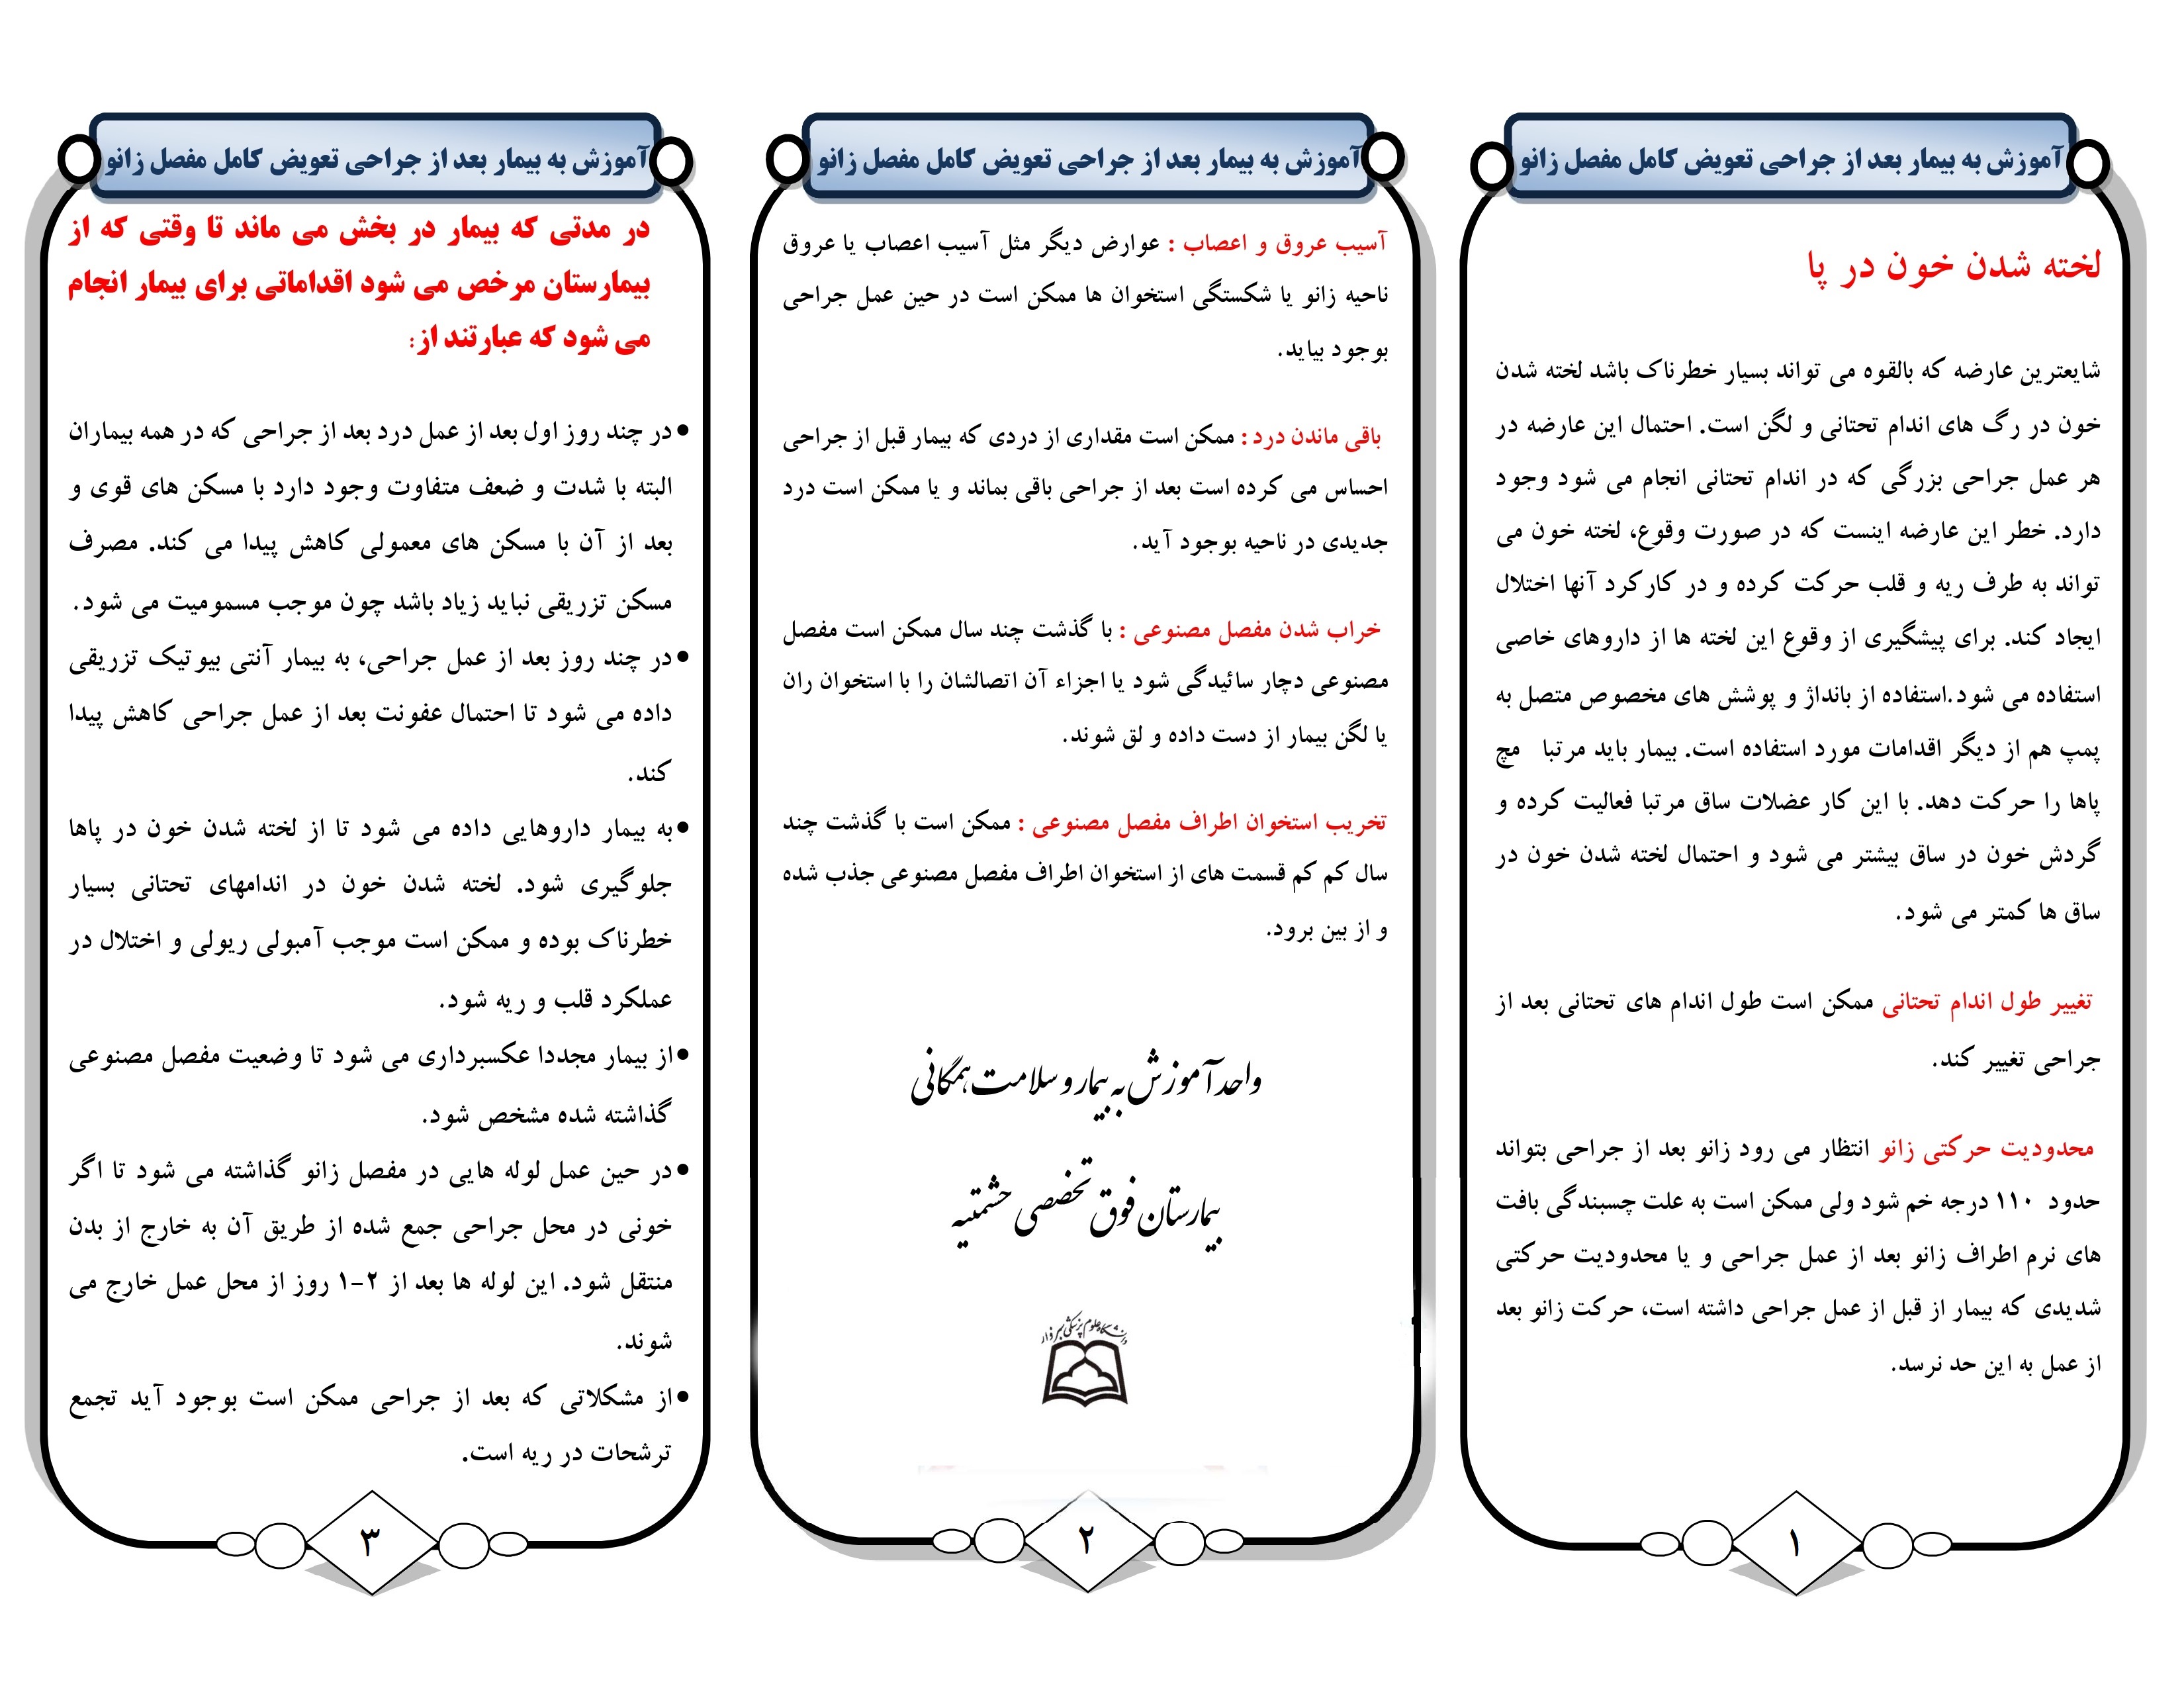 آموزش به بیمار بعد از جراحی تعویض کامل مفصل زانو
لخته شدن خون در پا
شایعترین عارضه که بالقوه می تواند بسیار خطرناک باشد لخته شدن
خون در رگ های اندام تحتانی و لگن است. احتمال این عارضه در
هر عمل جراحی بزرگی که در اندام تحتانی انجام می شود وجود
دارد. خطر این عارضه اینست که در صورت وقوع، لخته خون می
تواند به طرف ریه و قلب حرکت کرده و در کارکرد آنها اختلال
ایجاد کند. برای پیشگیری از وقوع این لخته ها از داروهای خاصی
استفاده می شود.استفاده از بانداژ و پوشش های مخصوص متصل به
پمپ هم از دیگر اقدامات مورد استفاده است. بیمار باید مرتبا مچ
پاها را حرکت دهد. با این کار عضلات ساق مرتبا فعالیت کرده و
گردش خون در ساق بیشتر می شود و احتمال لخته شدن خون در
ساق ها کمتر می شود.
تغییر طول اندام تحتانی ممکن است طول اندام های تحتانی بعد از
جراحی تغییر کند.
محدودیت حرکتی زانو انتظار می رود زانو بعد از جراحی بتواند
حدود ۱۱۰ درجه خم شود ولی ممکن است به علت چسبندگی بافت
های نرم اطراف زانو بعد از عمل جراحی و یا محدودیت حرکتی
شدیدی که بیمار از قبل از عمل جراحی داشته است، حرکت زانو بعد
از عمل به این حد نرسد.
۱
آموزش به بیمار بعد از جراحی تعویض کامل مفصل زانو
آسیب عروق و اعصاب : عوارض دیگر مثل آسیب اعصاب یا عروق
ناحیه زانو یا شکستگی استخوان ها ممکن است در حین عمل جراحی
بوجود بیاید.
باقی ماندن درد : ممکن است مقداری از دردی که بیمار قبل از جراحی
احساس می کرده است بعد از جراحی باقی بماند و یا ممکن است درد
جدیدی در ناحیه بوجود آید.
خراب شدن مفصل مصنوعی : با گذشت چند سال ممکن است مفصل
مصنوعی دچار سائیدگی شود یا اجزاء آن اتصالشان را با استخوان ران
یا لگن بیمار از دست داده و لق شوند.
تخریب استخوان اطراف مفصل مصنوعی : ممکن است با گذشت چند
سال کم کم قسمت های از استخوان اطراف مفصل مصنوعی جذب شده
و از بین برود.
واحد آموزش به بیمار و سلامت همگانی
بیمارستان فوق تخصصی حشمتیه
دانشگاه علوم پزشکی سبزوار
۲
آموزش به بیمار بعد از جراحی تعویض کامل مفصل زانو
در مدتی که بیمار در بخش می ماند تا وقتی که از
بیمارستان مرخص می شود اقداماتی برای بیمار انجام
می شود که عبارتند از:
•در چند روز اول بعد از عمل درد بعد از جراحی که در همه بیماران
البته با شدت و ضعف متفاوت وجود دارد با مسکن های قوی و
بعد از آن با مسکن های معمولی کاهش پیدا می کند. مصرف
مسکن تزریقی نباید زیاد باشد چون موجب مسمومیت می شود.
•در چند روز بعد از عمل جراحی، به بیمار آنتی بیوتیک تزریقی
داده می شود تا احتمال عفونت بعد از عمل جراحی کاهش پیدا
کند.
•به بیمار داروهایی داده می شود تا از لخته شدن خون در پاها
جلوگیری شود. لخته شدن خون در اندامهای تحتانی بسیار
خطرناک بوده و ممکن است موجب آمبولی ریوی و اختلال در
عملکرد قلب و ریه شود.
•از بیمار مجددا عکسبرداری می شود تا وضعیت مفصل مصنوعی
گذاشته شده مشخص شود.
•در حین عمل لوله هایی در مفصل زانو گذاشته می شود تا اگر
خونی در محل جراحی جمع شده از طریق آن به خارج از بدن
منتقل شود. این لوله ها بعد از ۲-۱ روز از محل عمل خارج می
شوند.
•از مشکلاتی که بعد از جراحی ممکن است بوجود آید تجمع
ترشحات در ریه است.
۳